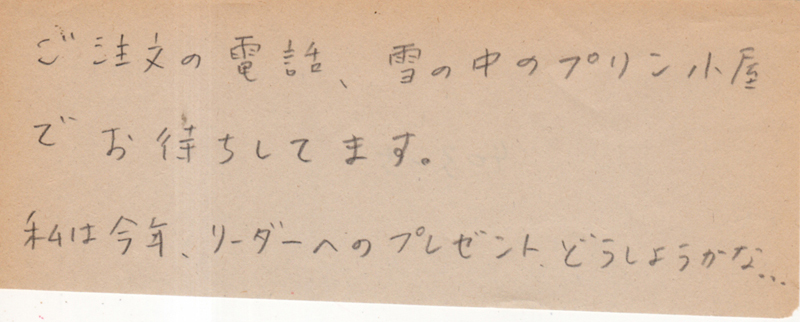 ご注文の電話、雪の中のプリン小屋
でお待ちしてます。
私は今年、リーダーへのプレゼント、どうしようかな...